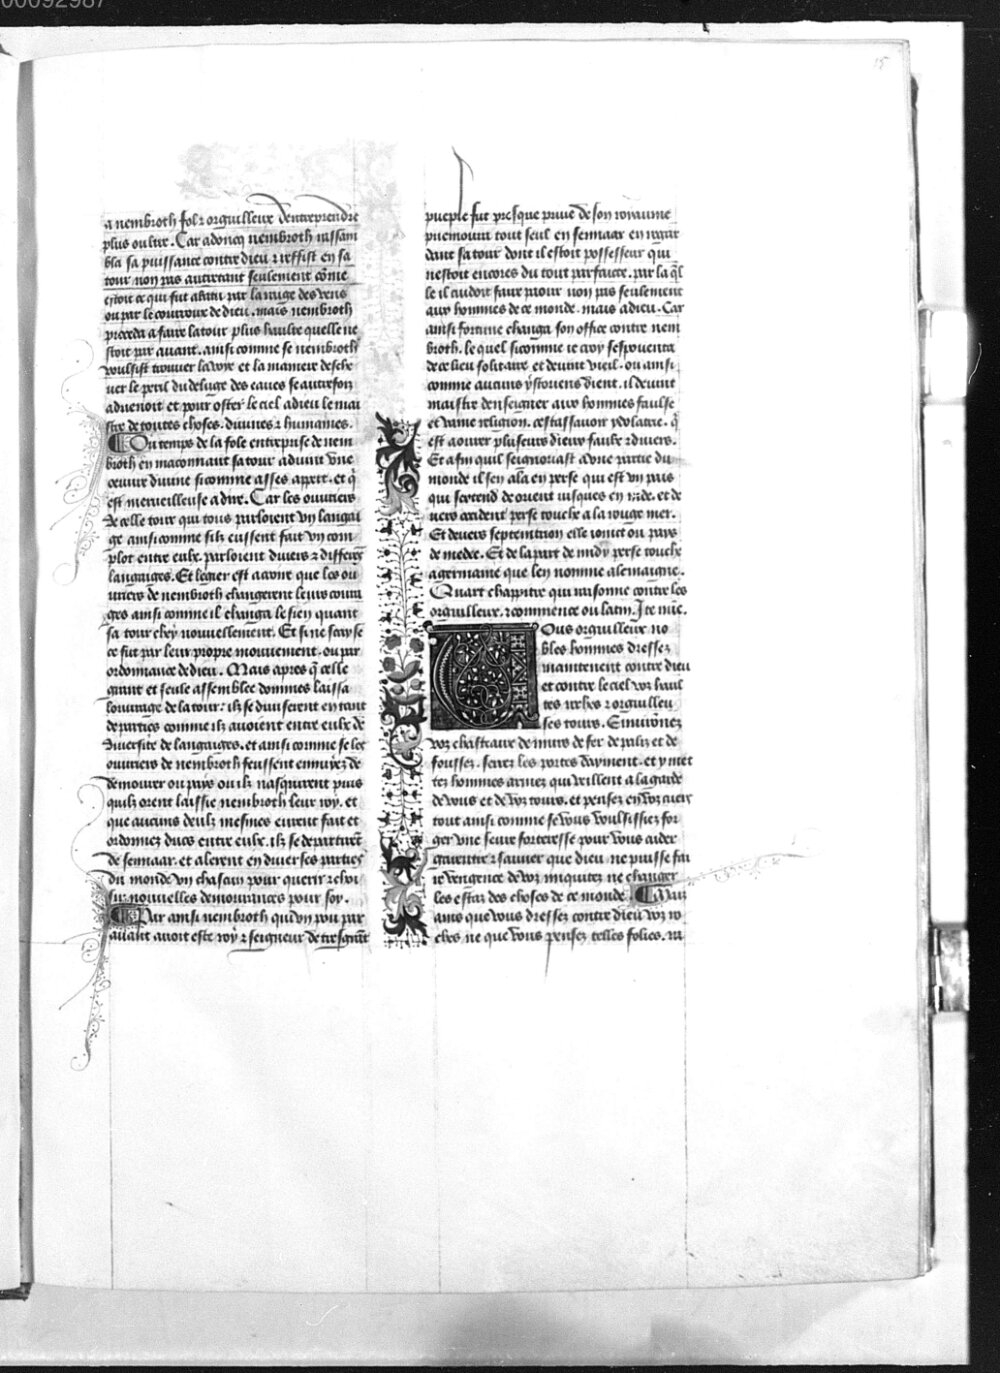 00092987
15
a nembroth fol ⁊ orguilleux dentreprendre
plus oultre. Car adoncq nembroth rassam
bla sa puissance contre dieu ⁊ reffist en sa
tour non pas autretant seulement cōme
estoit ce qui fut abatu par la rage des vens
ou par le courroux de dieu. mais nembroth
proceda a faire la tour plus haulte quelle ne
stoit par auant. ainsi comme se nembroth
voulsist trouuer la voye et la maniere desche
uer le peril du deluge des eaues se autrefoiz
aduenoit et pour oster le ciel a dieu le mai
stre de toutes choses. diuines ⁊ humaines.
Ou temps de la fole entreprise de nem
broth en maconnant sa tour aduint vne
oeuure diuine si comme asses apert. et q̄
est merueilleuse a dire. Car les ouuriers
de celle tour qui tous parloient vn langai
ge ainsi comme silz eussent fait vn com
plot entre eulx. parloient diuers ⁊ differēs
langaiges. Et legier est a croire que les ou
uriers de nembroth changerent leurs coura
ges ainsi comme il changa le sien quant
sa tour chey nouuellement. Et si ne scay se
ce fut par leur propre mouuement. ou par
ordonnance de dieu. Mais apres q̄ celle
grant et seule assemblee dommes laissa
louurage de la tour: ilz se diuiserent en tant
de parties comme ilz auoient entre eulx de
diuersite de langaiges. et ainsi comme se les
ouuriers de nembroth feussent ennuyez de
demourer ou pays ou ilz nasquirent puis
quilz orent laissie nembroth leur roy. et
que aucuns deulz mesmes eurent fait et
ordonnez ducs entre eulx. ilz se departirēt
de sennaar. et alerent en diuerses parties
du monde vn chascun pour querir ⁊ choi
sir nouuelles demourances pour soy.
Par ainsi nembroth qui vn pou par
auant auoit este roy ⁊ seigneur de tresgrāt
pueple fut presque priue de son royaume
⁊ demoura tout seul en sennaar en regar
dant sa tour dont il estoit possesseur qui
nestoit encores du tout parfaicte. par la q̄l
le il cuidoit faire paour non pas seulement
aux hommes de ce monde. mais a dieu. Car
ainsi fortune changa son office contre nem
broth. le quel si comme ie croy sespouenta
de ce lieu solitaire et deuint vieil. ou ainsi
comme aucuns ystoriens dient. il deuint
maistre denseigner aux hommes faulse
et vaine religion. cestassauoir ydolatrie. q̄
est aourer plusieurs dieux faulx ⁊ diuers.
Et afin quil seignoriast a vne partie du
monde il sen ala en perse qui est vn pais
qui sextend de orient iusques en inde. et de
uers occident perse touche a la rouge mer.
Et deuers septemtrion elle ioinct ou pays
de medee. Et de la part de midy perse touche
a germanie que len nomme alemaigne.
Quart chappitre qui raisonne contre les
orguilleux. ⁊ commence ou latin. Ite nūc.
Vous orguilleux no
bles hommes dressez
maintenent contre dieu
et contre le ciel voz haul
tes roches ⁊ orguilleu
ses tours. Enuironez
voz chasteaux de murs de fer de paliz et de
foussez. serrez les portes dayment. et y met
tez hommes armez qui veillent a la garde
de vous et de voz tours. et pensez en voz cuers
tout ainsi comme se vous voulsissiez for
ger vne seure forteresse pour vous aider
garentir ⁊ sauuer que dieu ne puisse fai
re vengence de voz iniquitez ne changer
les estaz des choses de ce monde. Mais
ains que vous dressez contre dieu voz ro
ches ne que vous pensez telles folies. ra